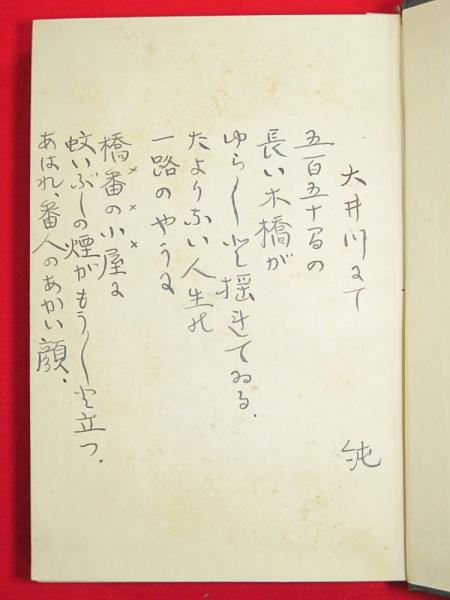 大井川にて
五百五十間の
長い木橋が
ゆら〱と揺れてゐる.
たよりない人生の
一路のやうに
× × ×
橋番の小屋に
蚊いぶしの煙がもう〱と立つ.
あはれ、番人のあかい顔.
純